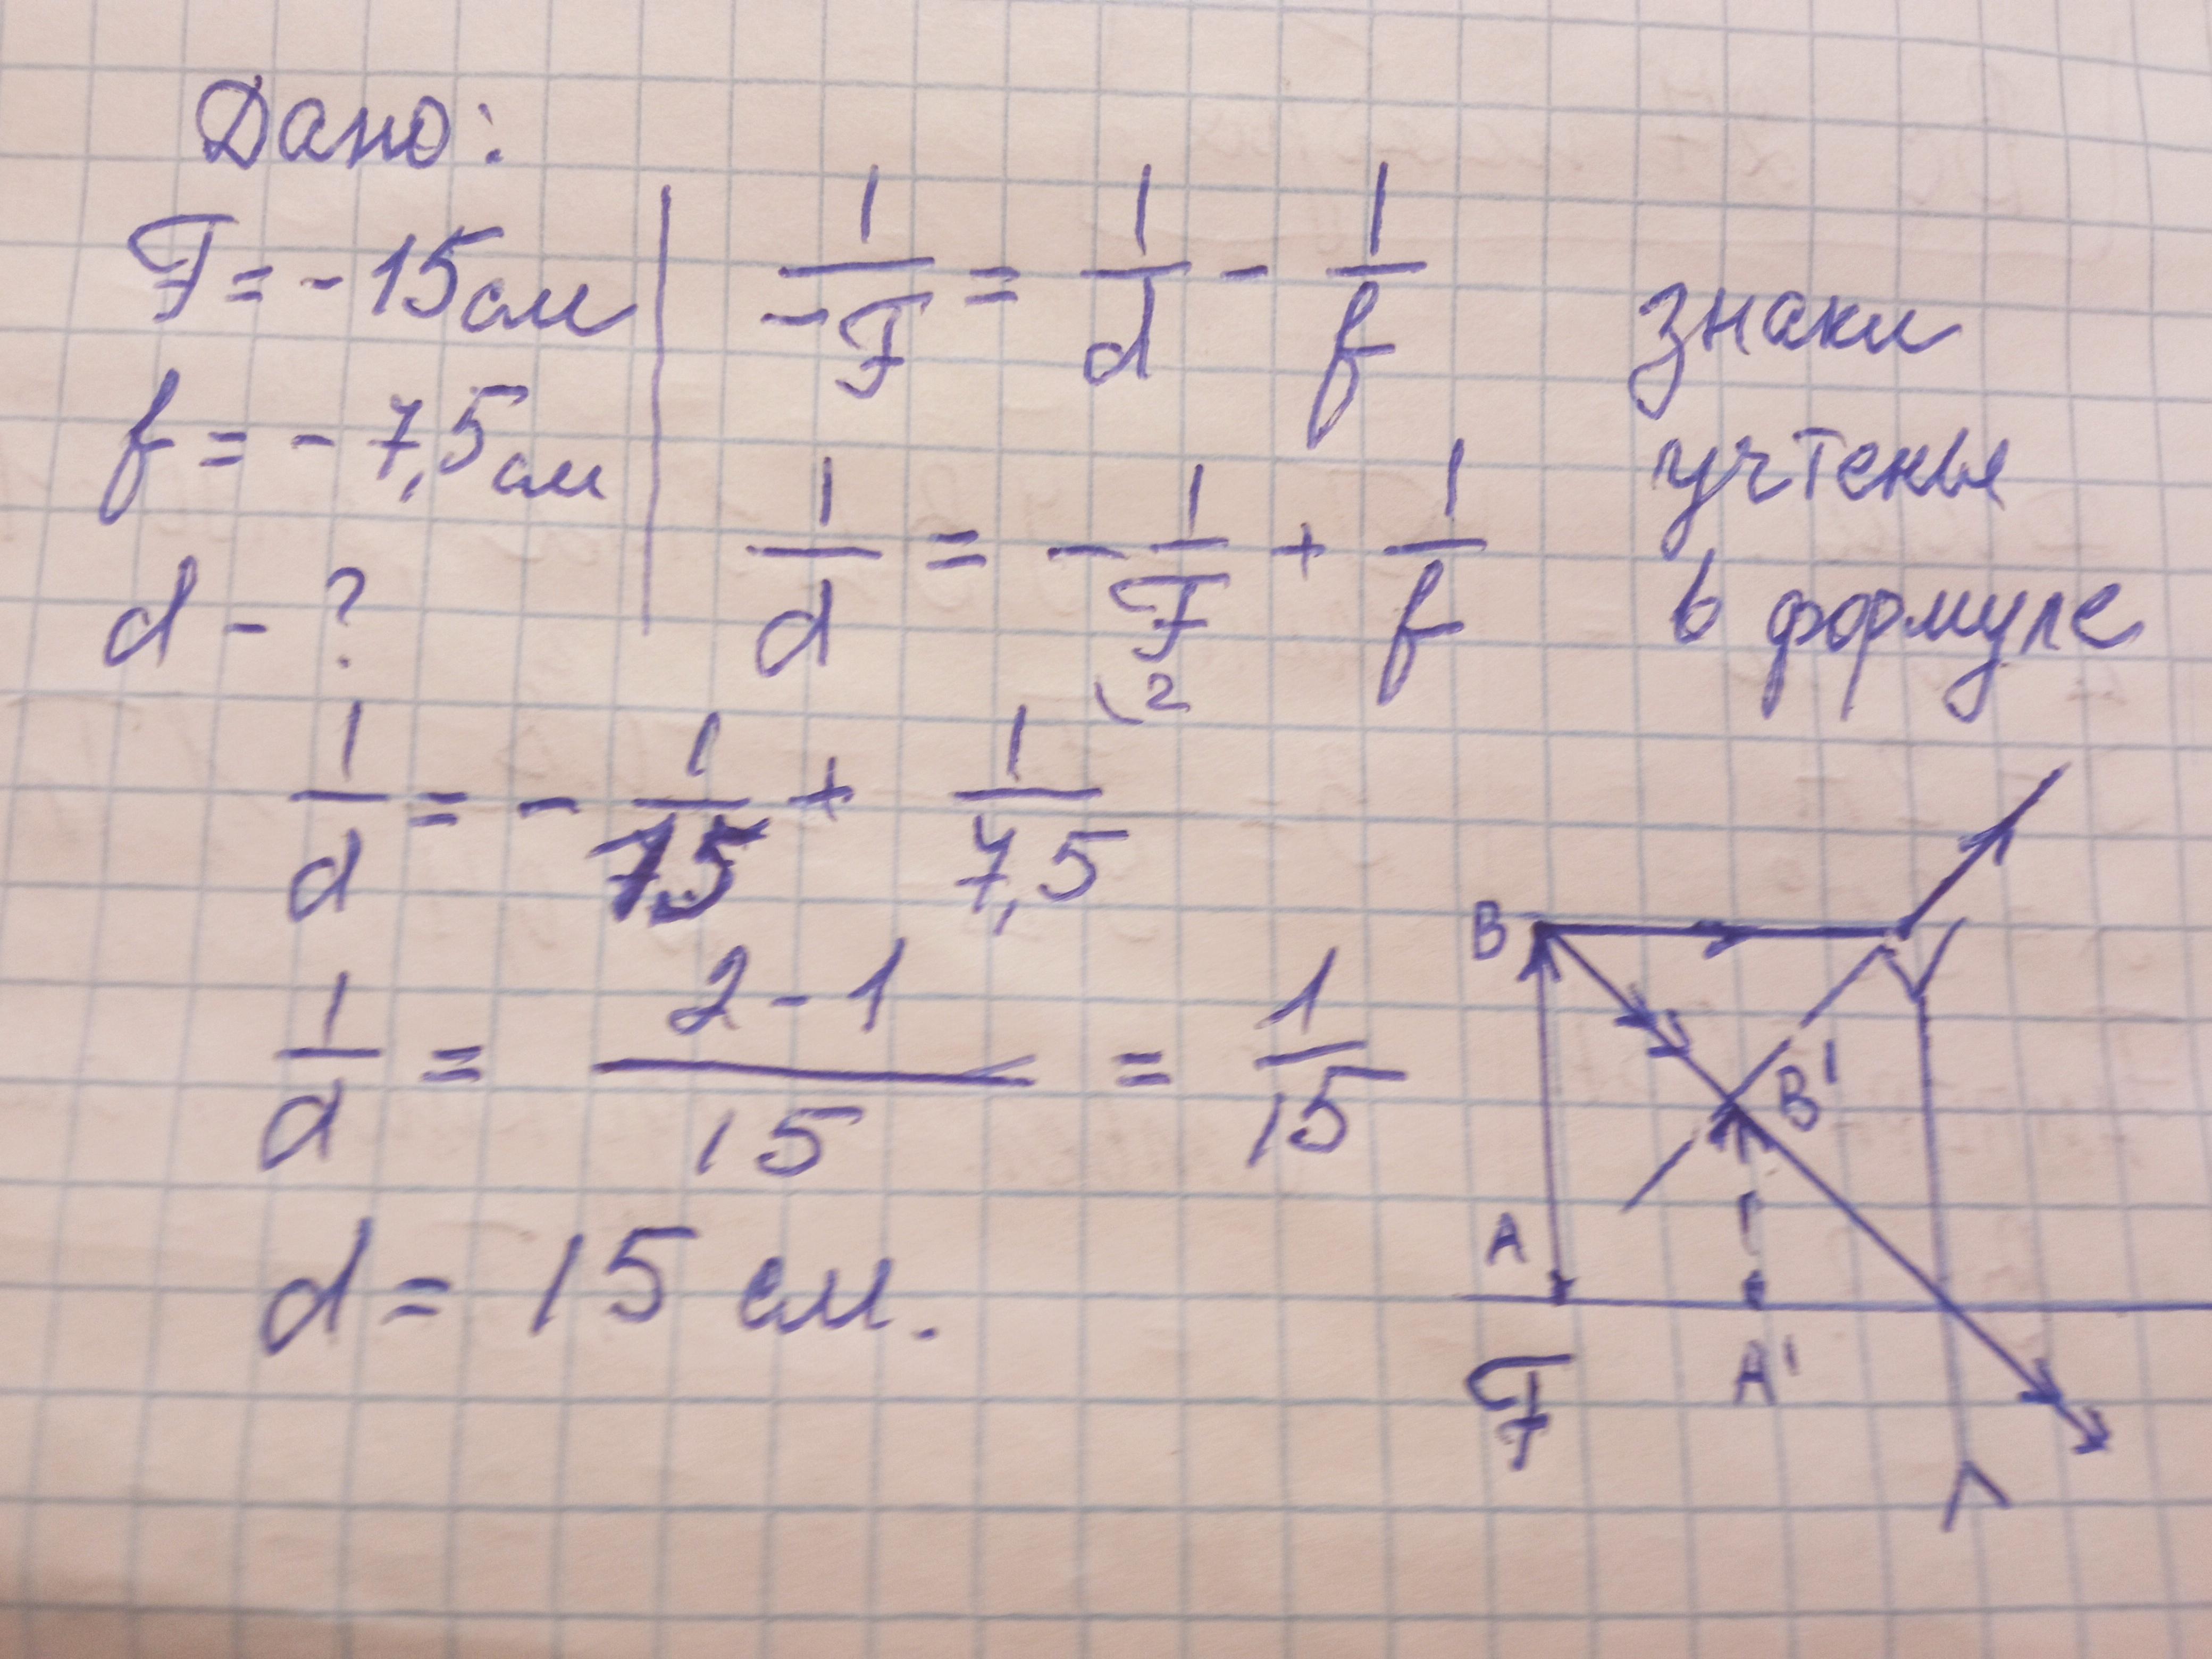 Дано:
F = - 15 см
f = - 7,5 см
d - ?
1/-F = 1/d - 1/f
1/d = - 1/F + 1/f
знаки
учтены
в формуле
\2
1/d = - 1/15 + 1/7,5
1/d = (2 - 1)/15 = 1/15
d = 15 см.
B
B'
A
A'
F